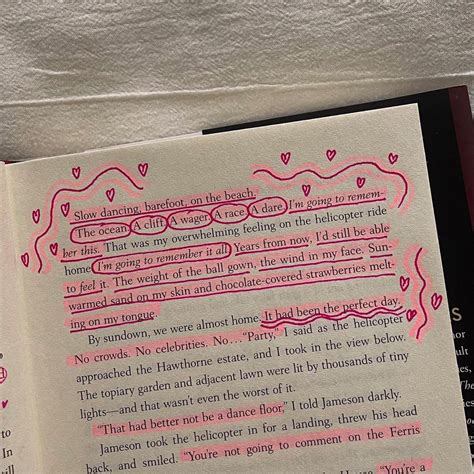 Slow dancing, barefoot, on the beach.
The ocean. A clift. A wager. A race. A dare. I'm going to remem-
ber this. That was my overwhelming feeling on the helicopter ride
home. I'm going to remember it all. Years from now, I'd still be able
to feel it. The weight of the ball gown, the wind in my face. Sun-
warmed sand on my skin and chocolate-covered strawberries melt-
ing on my tongue.
By sundown, we were almost home. It had been the perfect day.
No crowds. No celebrities. No… "Party," I said as the helicopter
approached the Hawthorne estate, and I took in the view below.
The topiary garden and adjacent lawn were lit by thousands of tiny
lights—and that wasn't even the worst of it.
"That had better not be a dance floor," I told Jameson darkly.
Jameson took the helicopter in for a landing, threw his head
back, and smiled. "You're not going to comment on the Ferris
"You're a
to
In
will
S